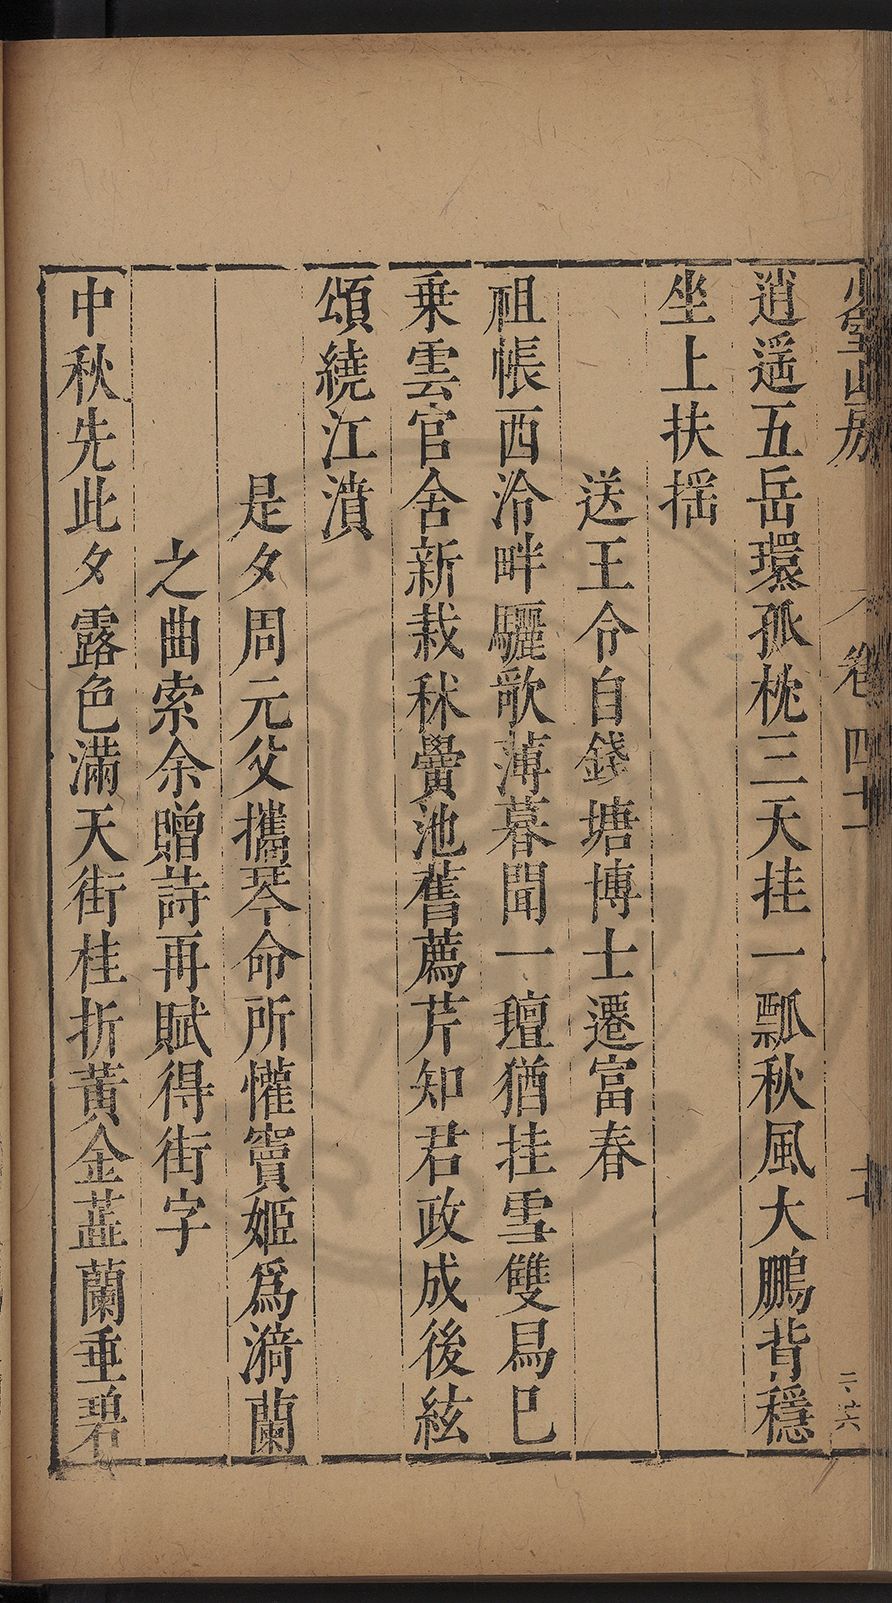 少室山房
卷四十
二·十六
逍遥五岳環孤枕三天挂一瓢秋風大鵬背穩
坐上扶揺
送王令自錢塘博士遷富春
祖帳西泠畔驪歌薄暮聞一氊猶挂雪雙舄巳
乗雲官舍新栽秫黌池舊薦芹知君政成後絃
頌繞江濆
是夕周元父攜琴命所懽竇姬爲漪蘭
之曲索余贈詩再賦得街字
中秋先此夕露色滿天街桂折黄金蘂蘭垂碧